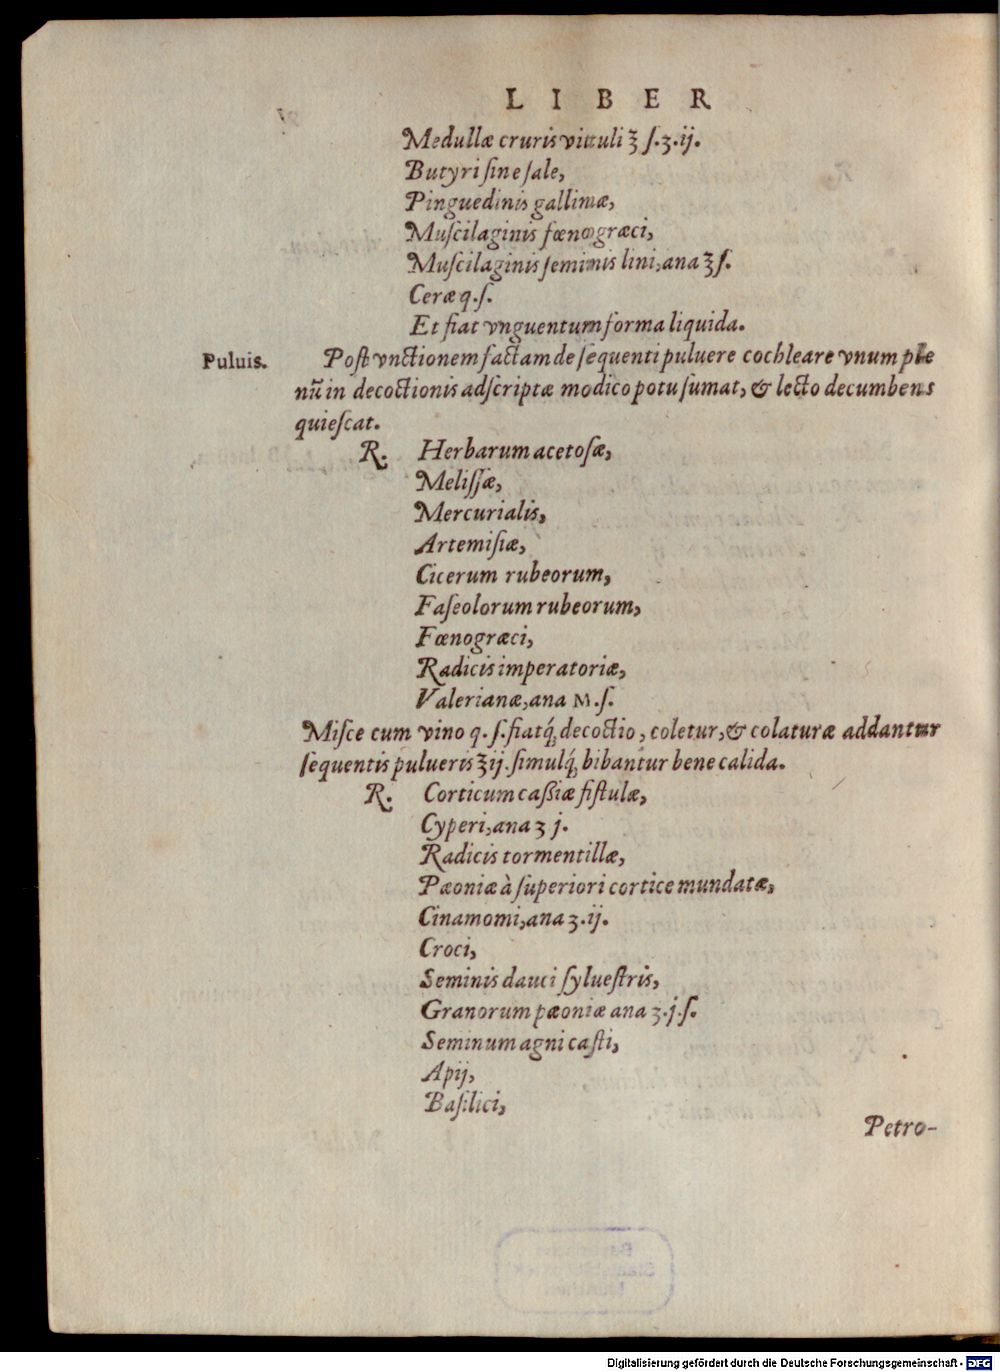 LIBER
Medullæ cruris vituli ℥ ſ.ʒ.ij.
Butyri ſine ſale,
Pinguedinis gallinæ,
Muſcilaginis fœnogræci,
Muſcilaginis ſeminis lini, ana ℥ ſ.
Ceræ q.ſ.
Et fiat vnguentum forma liquida.
Puluis. Poſt vnctionem factam de ſequenti puluere cochleare vnum ple
nũ in decoctionis adſcriptæ modico potu ſumat, & lecto decumbens
quieſcat.
R. Herbarum acetoſæ,
Meliſſæ,
Mercurialis,
Artemiſiæ,
Cicerum rubeorum,
Faſeolorum rubeorum,
Fœnogræci,
Radicis imperatoriæ,
Valerianæ, ana M.ſ.
Miſce cum vino q.ſ. fiatq́; decoctio, coletur, & colaturæ addantur
ſequentis pulueris ℥ij. ſimulq́; bibantur bene calida.
R. Corticum caßiæ fiſtulæ,
Cyperi, ana ʒ j.
Radicis tormentillæ,
Pæoniæ à ſuperiori cortice mundatæ,
Cinamomi, ana ʒ.ij.
Croci,
Seminis dauci ſylueſtris,
Granorum pæoniæ ana ʒ.j.ſ.
Seminum agni caſti,
Apij,
Baſilici,
Petro-
Digitalisierung gefördert durch die Deutsche Forschungsgemeinschaft - DFG